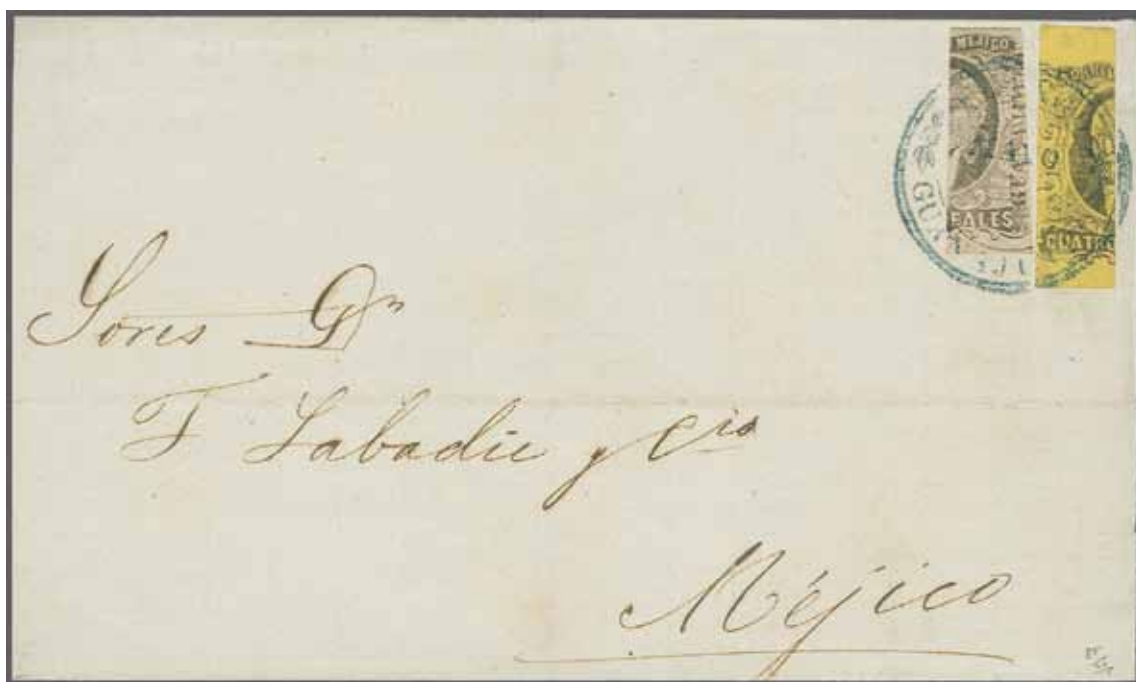 MEJICO
EALES
CUATR
GU
Sores Gn
F Labadie y Cia
Méjico